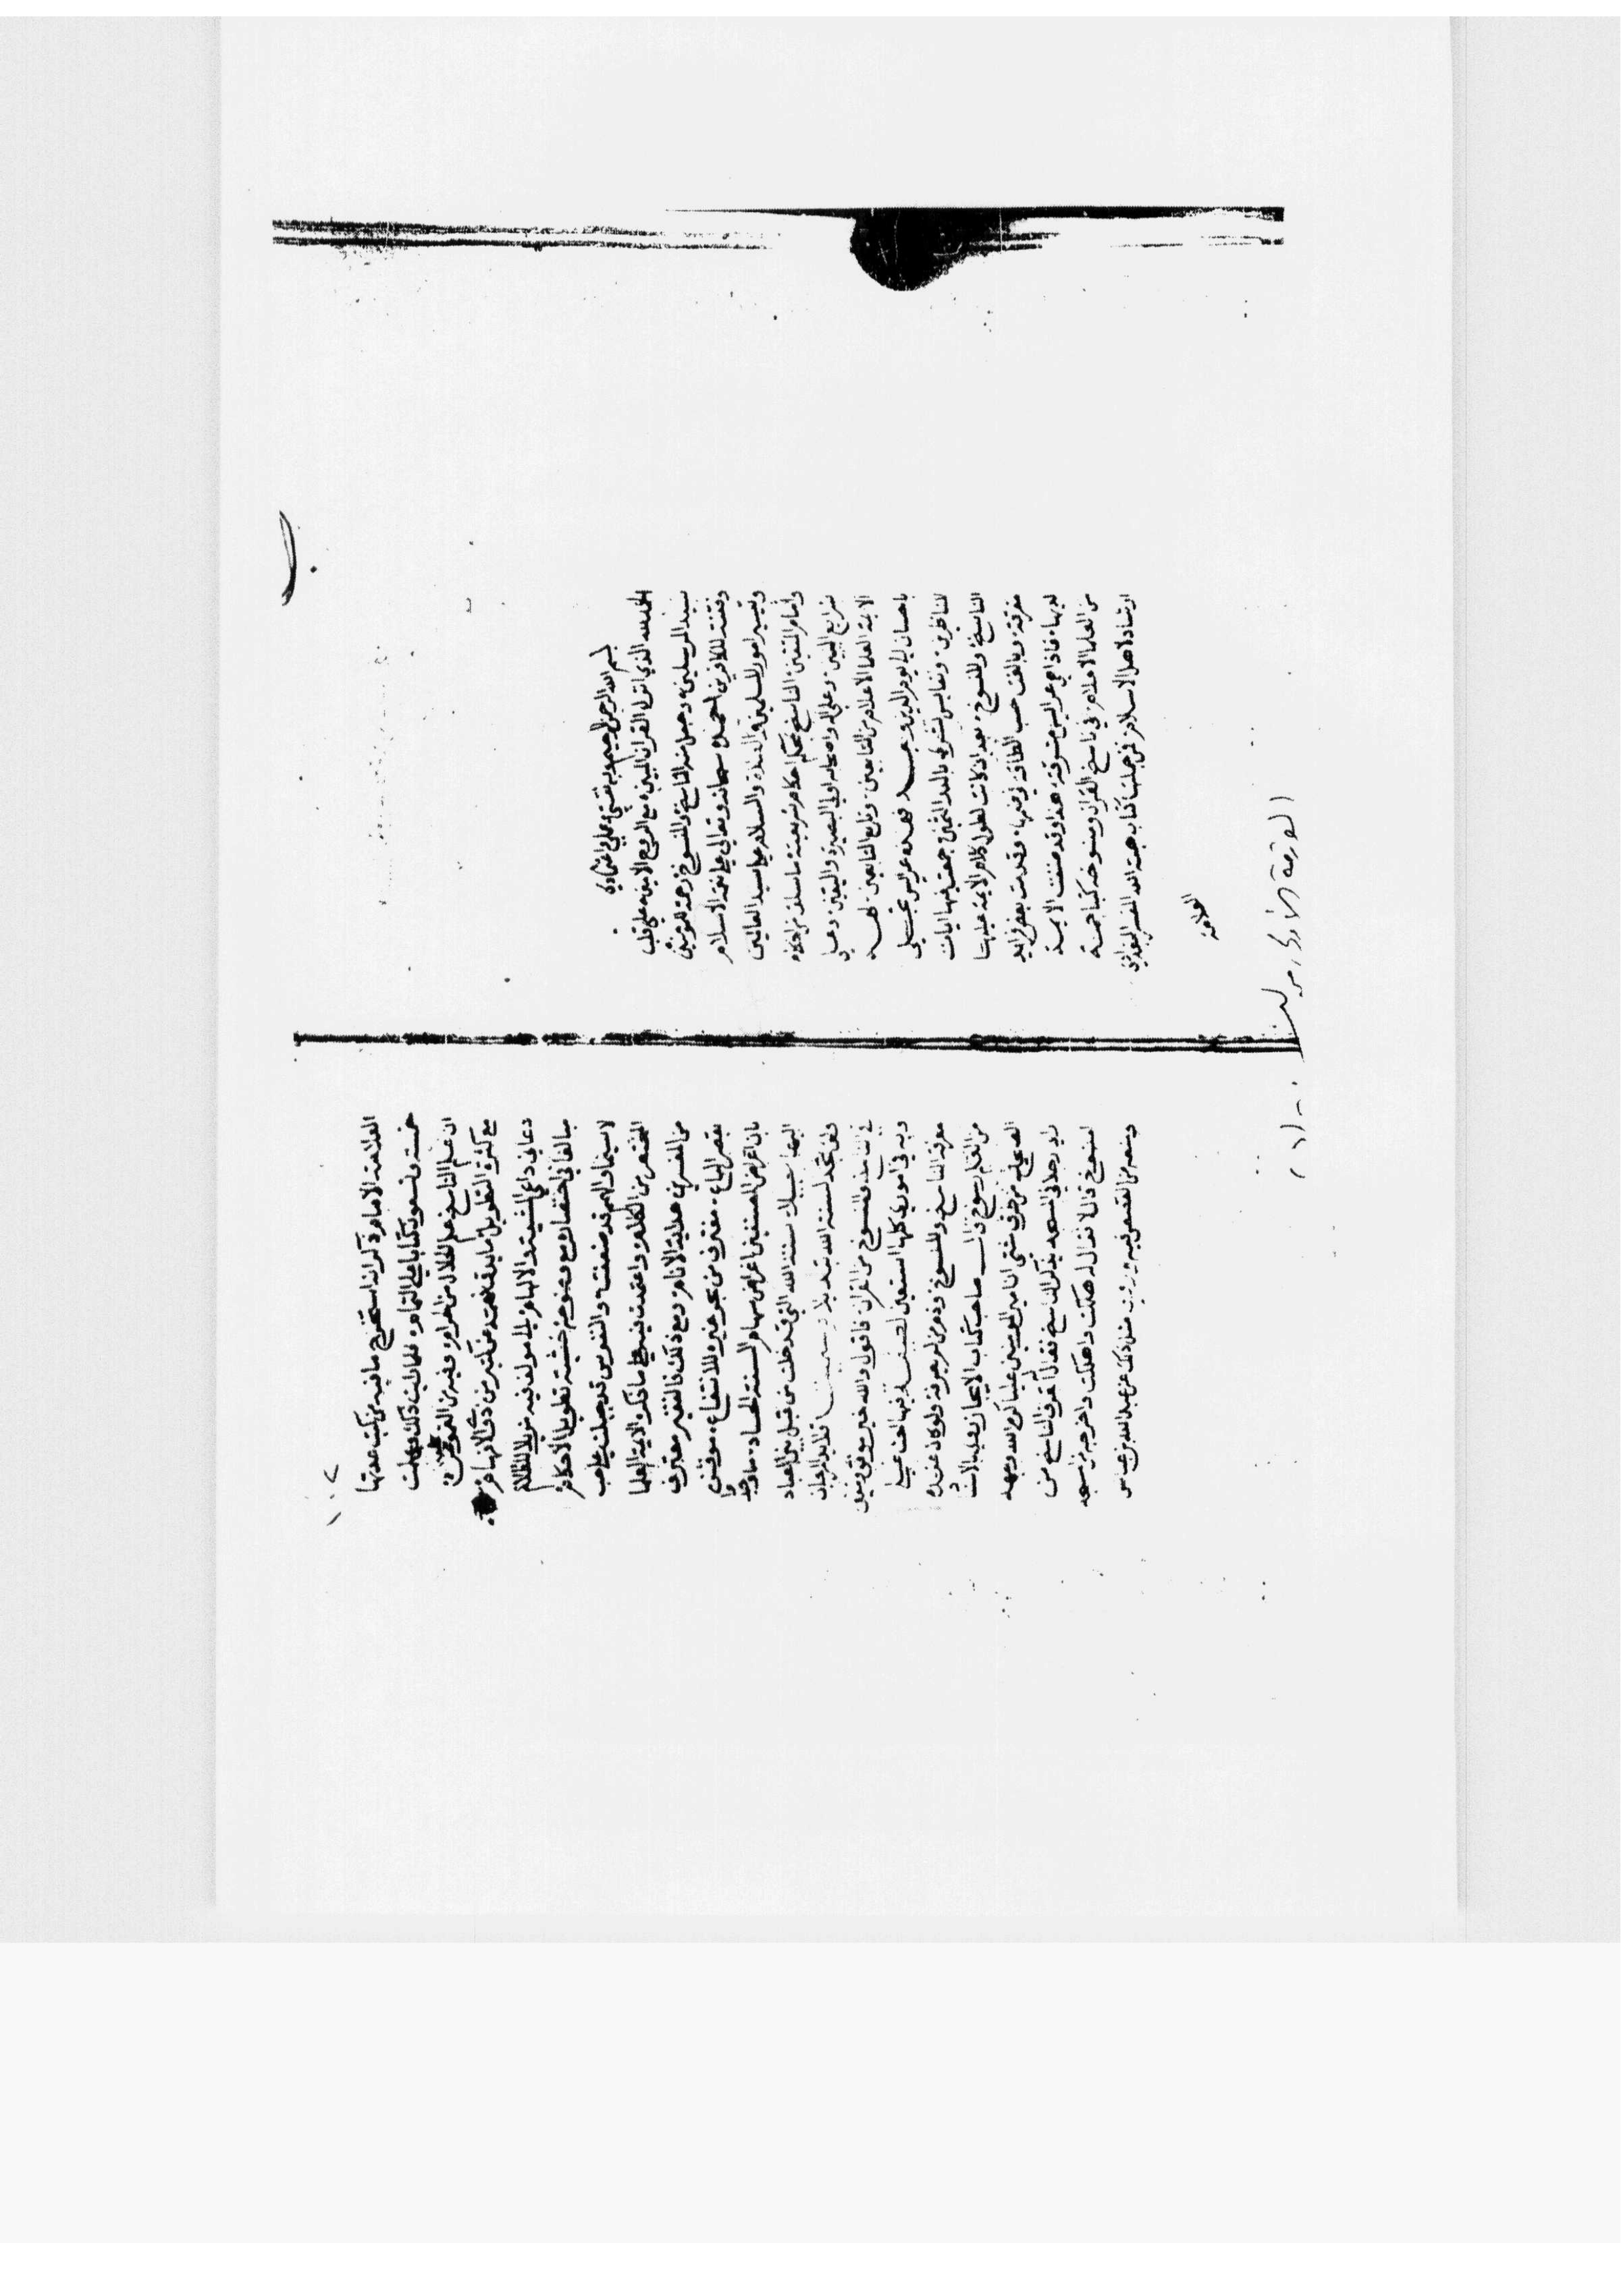 ب
بسم الله الرحمن الرحيم وبه ثقتي وعليه اعتمادي
الحمد لله الذي انزل القران المبين مع الروح الامين علي قلب
سيد المرسلين وجعل منه الناسخ والمنسوخ رحمة للمومنين
وفتنة للكافرين احمده سبحانه وتعالي علي نعمة الاسلام
وتيسير امور المسلمين والصلاة والسلام علي سيد العالمين
وامام المتقين الناسخ بمحكم احكام شريعته ما سلف من احكام
شرايع النبيين وعلي اله واصحابه اولي البصيرة واليقين وعلي
الايمة العلما الاعلام من التابعين وتابع التابعين لهم
باحسان الي يوم الدين وبعد فهذه عرايس تجتلي
للناظرين ونفايس تشتري بالعدد الثمين جمعت فيها ايات
الناسخ والمنسوخ بعد ان كانت لطول كلام الايمة عليها
متفرقة وبالغت حسب الطاقة في ضمها وقدمت بعض فوايد
لديها فاذا هي عرايس مشوقة هذا وقد صنفت الايمة
من العلما الاعلام في ناسخ القران ومنسوخه كتبا جمة
ارشادا لاهل الاسلام فمن جملتها كتاب هبة الله المفسر البغدادي
العلامة
الورقة الأولى من ل
١٠٢
العلامة الامام وذكر انه استخرج ما فيه من كتب عدتها
خمسة وتسعون كتابا علي التمام فلما رايت ذلك وعلمت
ان علم الناسخ علم الحلال من الحرام وفيه من الغموض
مع كثرة التطويل ما يدق فهمه عن كثير من ذوي الافهام
دعاني داعي المشيئة والالهام الي مولف فيه مزيلا للظلام
مبالغا في اختصاره مع وضوحه خشية تطويل الاحكام
لاسيما والهمم قد ضعفت والنفوس قد جبلت علي حب
المختصر من الكلام واعتمدت فيه علي ما ذكره الايمة العلما
من المفسرين هداية الانام ومع ذلك فالفقير معترف
بقصر الباع مغترف من بحر غيره للانتفاع موقن
بان اعراض المصنفين اغراض سهام السنة الحساد
اليها سبيلا سنة الله التي قد خلت من قبل بين العباد
فلن تجد لسنة الله تبديلا
في الناسخ والمنسوخ من القران فاقول والله خير موفق ومعين
وبه في اموري كلها استعين
معرفة الناسخ والمنسوخ ومن لم يعرفه ولو كان عنده
من العلم رسوخ قال صاحب كتاب الايجاز
الصحيح من طرق شتي ان امير المومنين عليا كرم الله وجهه
راي رجلا في المسجد يذكر الناس فقال اتعرف الناسخ من
المنسوخ قال لا فقال له هلكت واهلكت واخرجه من المسجد
ومنعه من القصص فيه وروي مثل ذلك عن عبد الله بن عباس